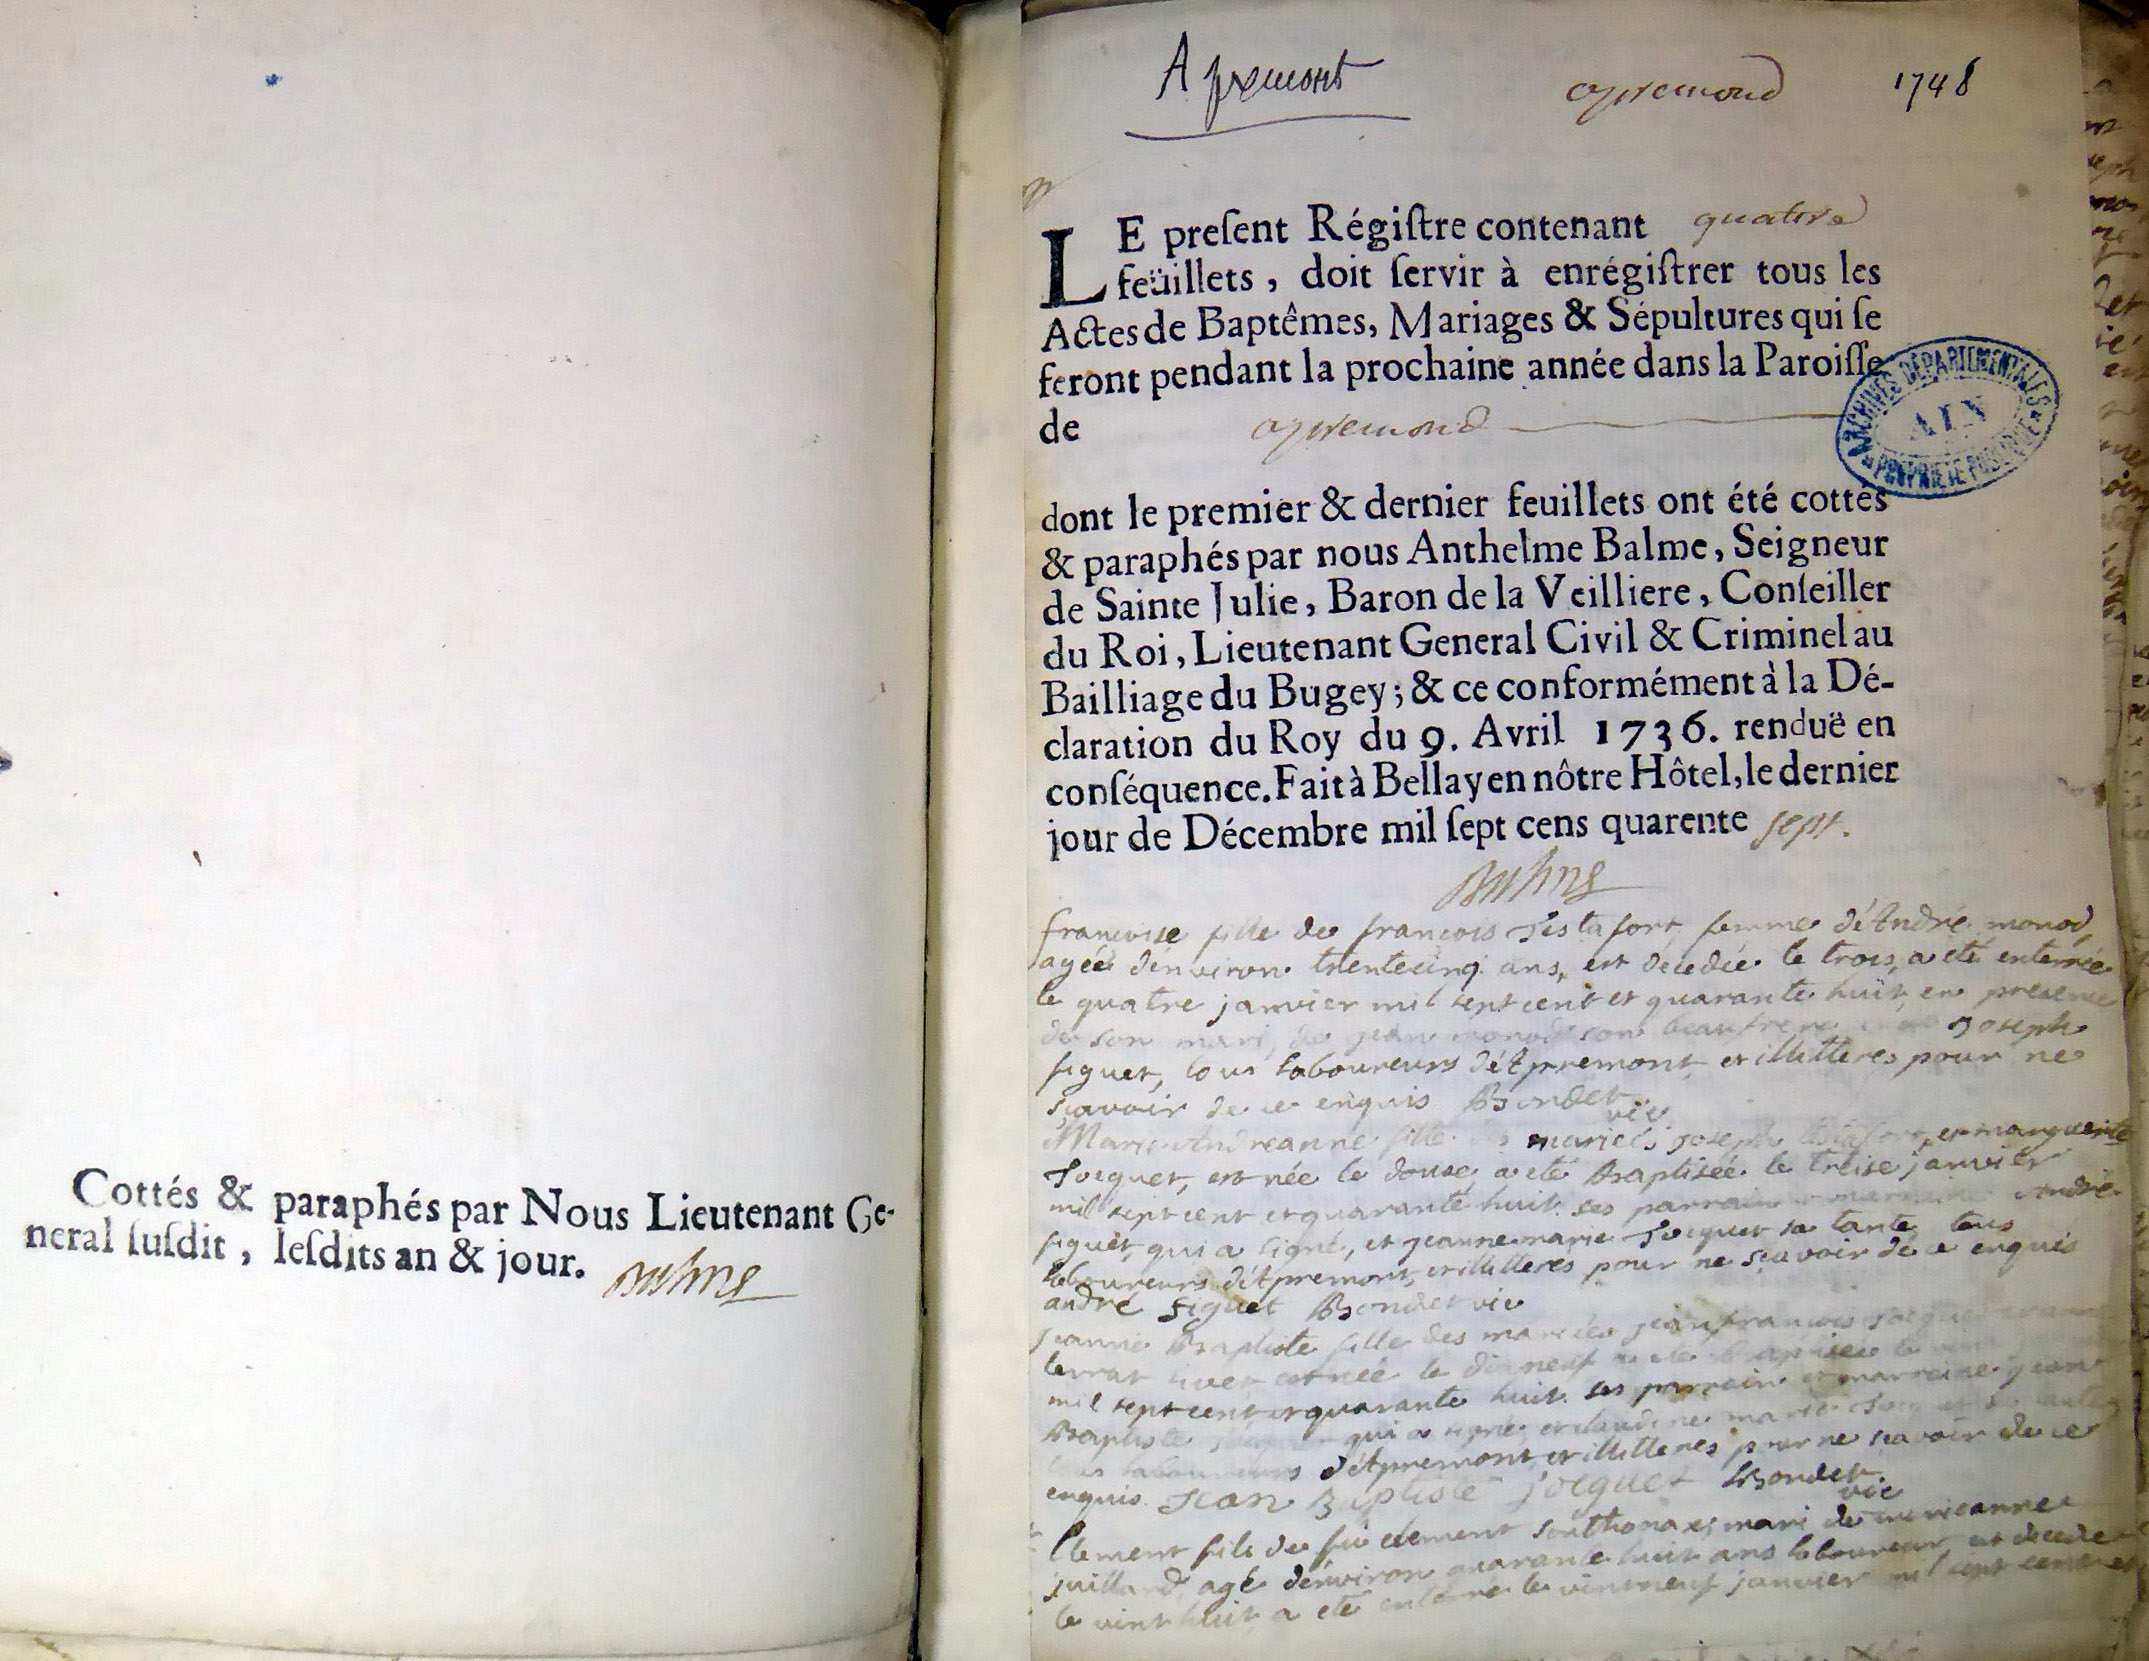 Cottés & paraphés par Nous Lieutenant Ge-
neral ſuſdit, leſdits an & jour.
Apremont
apremond
1748
LE preſent Régiſtre contenant quatre
feüillets, doit ſervir à enrégiſtrer tous les
Actes de Baptêmes, Mariages & Sépultures qui ſe
feront pendant la prochaine année dans la Paroiſſe
de apremond
ARCHIVES DÉPARTEMENTALES
AIN
PROPRIÉTÉ PUBLIQUE
dont le premier & dernier feuillets ont été cottés
& paraphés par nous Anthelme Balme, Seigneur
de Sainte Julie, Baron de la Veilliere, Conſeiller
du Roi, Lieutenant General Civil & Criminel au
Bailliage du Bugey; & ce conformément à la Dé-
claration du Roy du 9. Avril 1736. renduë en
conſéquence. Fait à Bellay en nôtre Hôtel, le dernier
jour de Décembre mil ſept cens quarente sept.
francoise fille de francois Testafort, femme d'Andre monod,
agée d'environ trentecinq ans, est decedée le trois, a eté enterrée
le quatre janvier mil sept cent et quarante huit, en presence
de son mari, de jean monod son beaufrere Joseph
figuet, tous laboureurs d'Apremont, et illitteres pour ne
sçavoir de ce enquis Bondet vic
Marie Andreanne fille mariés joseph et marguerite
Jocquet, est née le douse, a eté Baptisée le treise janvier
mil sept cent et quarante huit. ses parrain et marraine André
figuet, qui a signé, et jeanne marie Jocquet sa tante, tous
laboureurs d'Apremont, et illitteres pour ne sçavoir de ce enquis
andré figuet Bondet vic
jeanne Baptiste fille des mariés jean francois
est née le dixneuf a eté Baptisée le
mil sept cent et quarante huit. ses parrain et marraine jean
Baptiste qui a signé, et claudine marie
laboureurs d'Apremont, et illitteres pour ne scavoir de ce
enquis. Jean Baptiste jocquet Bondet vic
Clement fils de fû clement Sonthonax, mari de
juillard, agé d'environ quarante huit ans laboureur, est decedé
le vint huit, a eté enterré le vintneuf janvier mil sept cent et